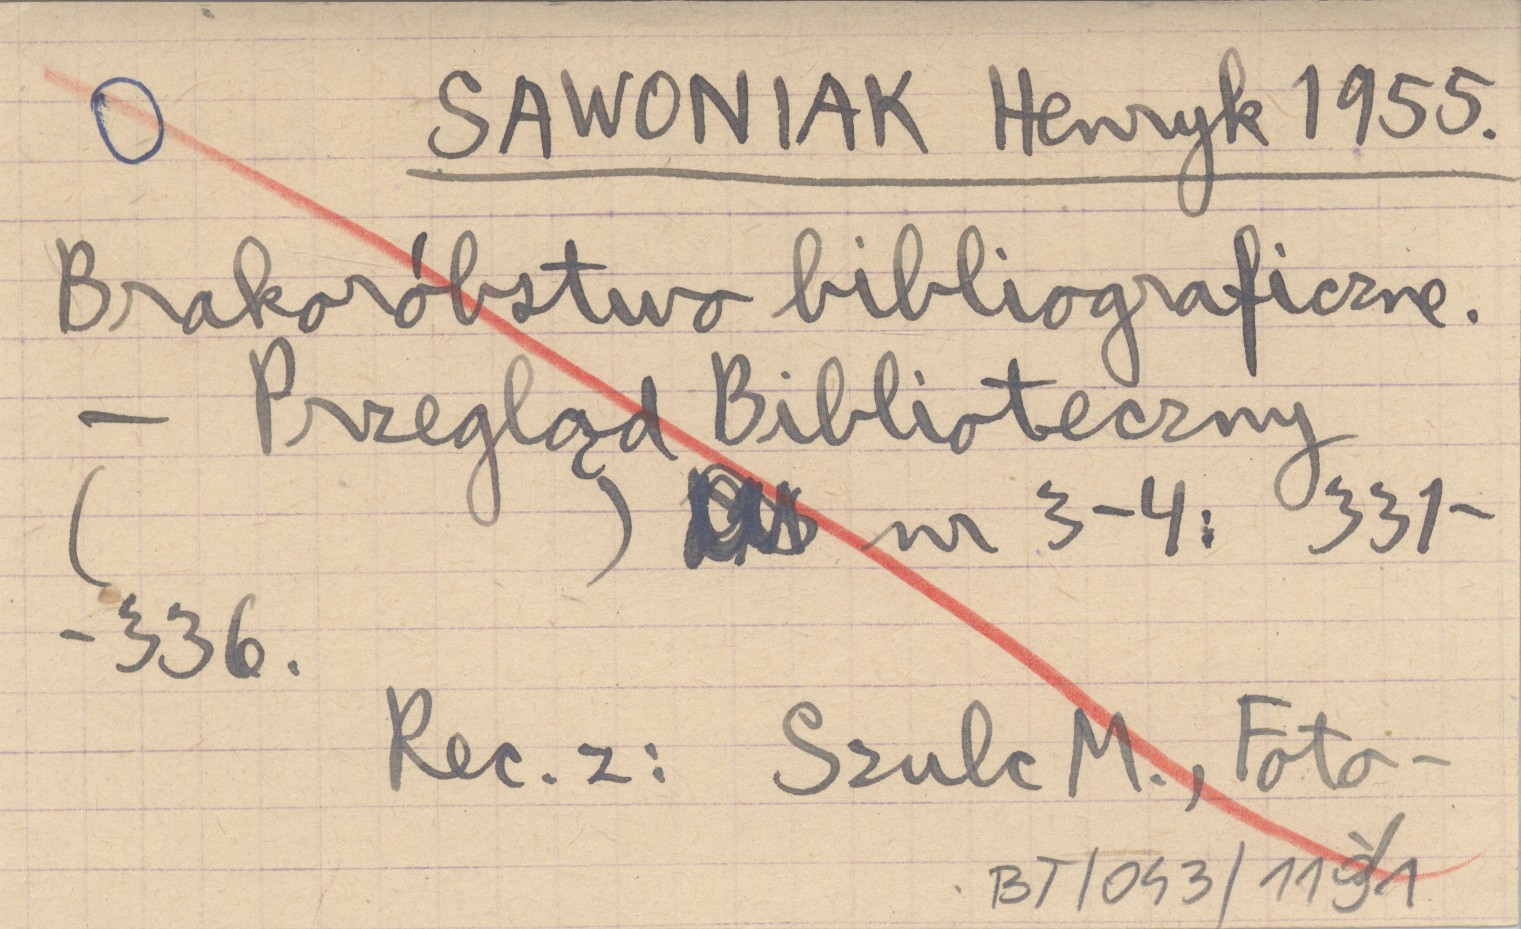 SAWONIAK Henryk 1955.
Brakoróbstwo bibliograficzne.
— Przegląd Biblioteczny
( ) nr 3-4: 331-
-336.
Rec. z: Szulc M., Foto-
BT/043/